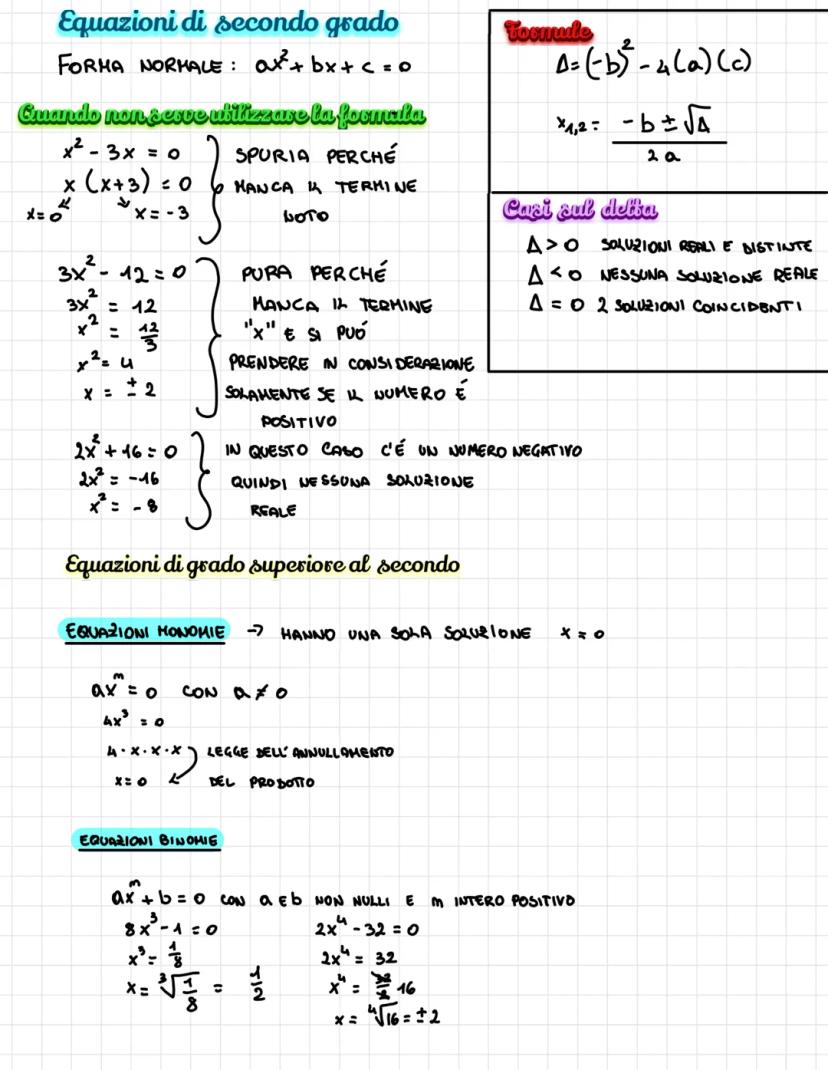 Equazioni di secondo grado
FORMA NORMALE: ax² + bx + c = 0
Quando non serve utilizzare la formula
x² - 3x = 0
x (x+3) = 0
x = 0 x = -3
SPURIA PERCHÉ
MANCA IL TERMINE
NOTO
3x² - 12 = 0
3x² = 12
x² = 12/3
x² = 4
x = ± 2
PURA PERCHÉ
MANCA IL TERMINE
"x" E SI PUÓ
PRENDERE IN CONSIDERAZIONE
SOLAMENTE SE IL NUMERO É
POSITIVO
2x² + 16 = 0
2x² = -16
x² = - 8
IN QUESTO CASO C'É UN NUMERO NEGATIVO
QUINDI NESSUNA SOLUZIONE
REALE
Formule
Δ = (-b)² - 4(a)(c)
x₁,₂ = -b ± √Δ / 2a
Casi sul delta
Δ > 0 SOLUZIONI REALI E DISTINTE
Δ < 0 NESSUNA SOLUZIONE REALE
Δ = 0 2 SOLUZIONI COINCIDENTI
Equazioni di grado superiore al secondo
EQUAZIONI MONOMIE → HANNO UNA SOLA SOLUZIONE x = 0
axᵐ = 0 CON a ≠ 0
4x³ = 0
4 · x · x · x LEGGE DELL'ANNULLAMENTO
x = 0 DEL PRODOTTO
EQUAZIONI BINOMIE
axᵐ + b = 0 CON a E b NON NULLI E m INTERO POSITIVO
8x³ - 1 = 0
x³ = 1/8
x = ³√1/8 = 1/2
2x⁴ - 32 = 0
2x⁴ = 32
x⁴ = 32/2 16
x = ⁴√16 = ± 2